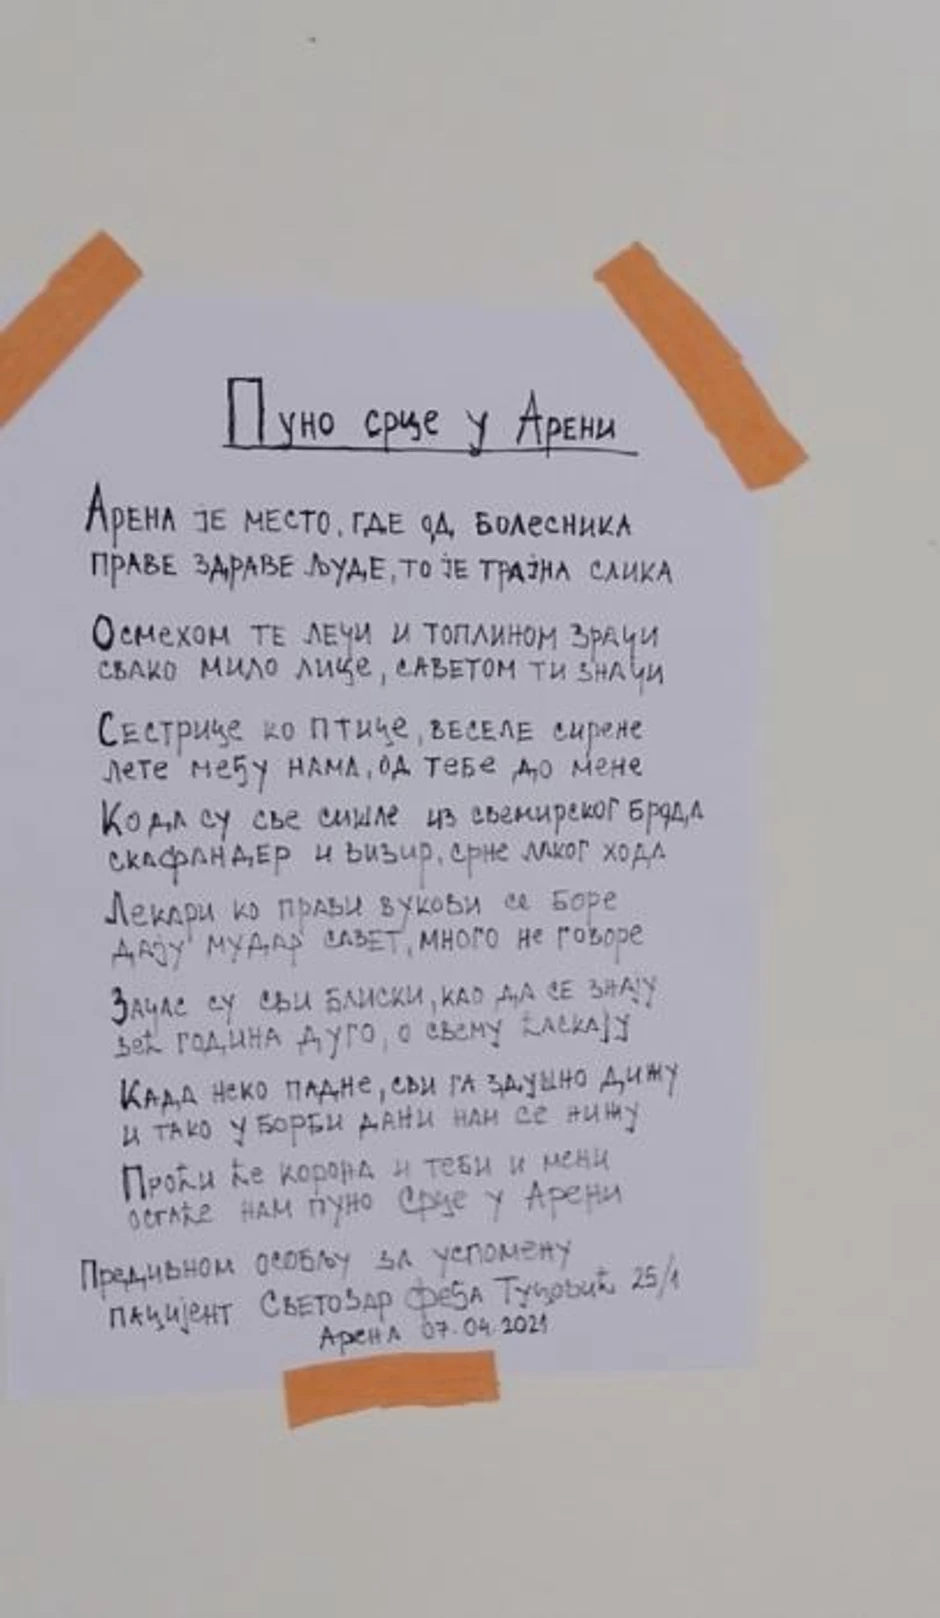 Пуно срце у Арени
Арена је место, где од болесника
праве здраве људе, то је трајна слика
Осмехом те лечи и топлином зрачи
свако мило лице, саветом ти значи
Сестрице ко птице, веселе сирене
лете међу нама, од тебе до мене
Ко да су све сишле из свемирског брода
скафандер и визир, срне лаког хода
Лекари ко прави вукови се боре
дају мудар савет, много не говоре
Зачас су сви блиски, као да се знају
већ година дуго, о свему ћаскају
Када неко падне, сви га здушно дижу
и тако у борби дани нам се нижу
Проћи ће корона и теби и мени
остаће нам пуно Срце у Арени
Предивном особљу за успомену
пацијент Светозар Феђа Туцовић 25/1
Арена 07.04.2021